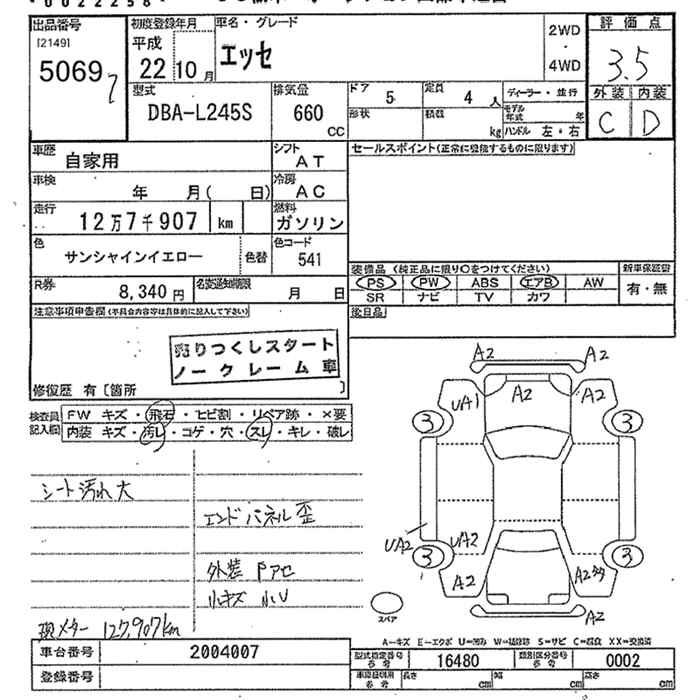 00222258
出品番号
[2149]
5069
初度登録年月
平成
22 10月
車名・グレード
エッセ
2WD
・
4WD
評価点
3.5
外装 内装
C D
型式
DBA-L245S
排気量
660
CC
ドア
5
定員
4人
形状
積載
kg
ディーラー・並行
モデル年式 年
ハンドル 左・右
車歴
自家用
シフト
AT
セールスポイント(正常に登能するものに限ります)
車検
年 月( 日)
冷房
AC
走行
12万7千907 km
燃料
ガソリン
色
サンシャインイエロー
色替
色コード
541
装備品 (純正品に限り○をつけてください)
新車保証書
PS PW ABS エアB AW
有・無
SR ナビ TV カワ
R券
8,340円
名変通知期限
月 日
後日品
注意事項申告欄(不具合内容等は具体的に記入して下さい)
売りつくしスタート
ノークレーム車
修復歴 有 [箇所 ]
検査員記入欄
FW キズ・飛石・ヒビ割・リペア跡・×要
内装 キズ・汚レ・コゲ・穴・スレ・キレ・破レ
シート汚れ大
エンドパネル歪
外装
小キズ 小U
現メター 127,907km
A2 A2
UA1 A2 A2
3 3
UA2 UA2
3 3
A2 A2
A2
スペア
A-キズ E-エクボ U=凹み S=サビ C=腐食 XX=交換済
車台番号
2004007
型式指定番号
参考
16480
類別区分番号
参考
0002
登録番号
参考
長さ cm
幅 cm
高さ cm